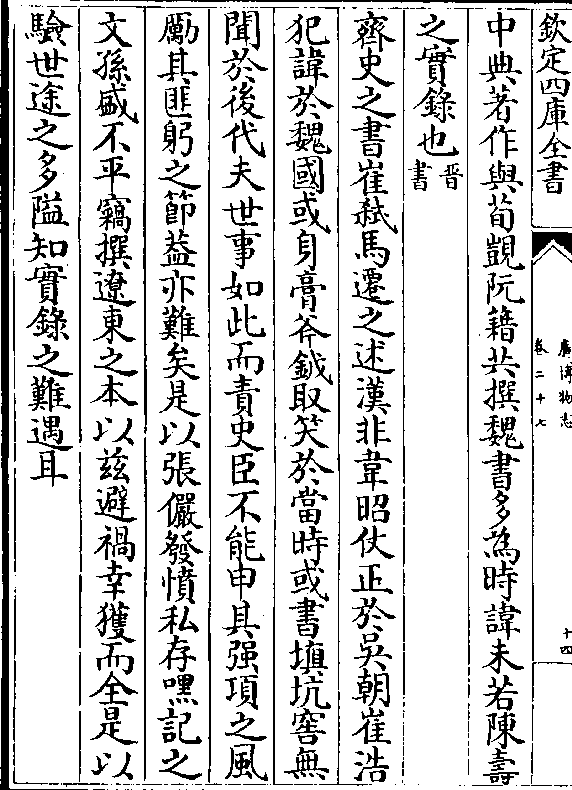 欽定四庫全書
廣博物志
卷二十七
十四
中典著作與荀顗阮籍共撰魏書多為時諱未若陳壽
之實錄也晉書
齊史之書崔弑馬遷之述漢非韋昭仗正於吳朝崔浩
犯諱於魏國或身膏斧鉞取笑於當時或書塡坑窖無
聞於後代夫世事如此而責史臣不能申其强項之風
勵其匪躬之節葢亦難矣是以張儼發憤私存嘿記之
文孫盛不平竊撰遼東之本以兹避禍幸獲而全是以
驗世途之多隘知實錄之難遇耳